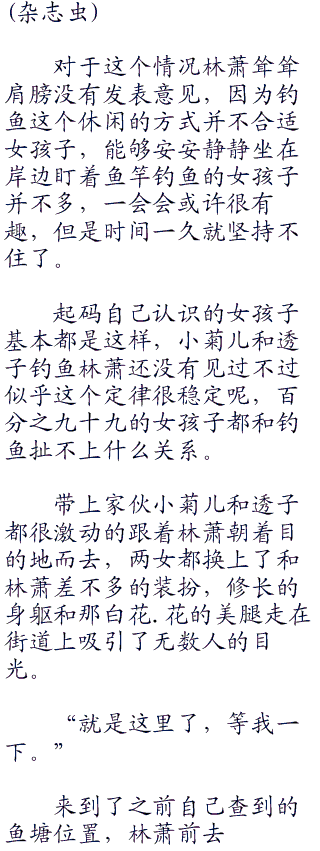 (杂志虫)
对于这个情况林萧耸耸
肩膀没有发表意见，因为钓
鱼这个休闲的方式并不合适
女孩子，能够安安静静坐在
岸边盯着鱼竿钓鱼的女孩子
并不多，一会会或许很有
趣，但是时间一久就坚持不
住了。
起码自己认识的女孩子
基本都是这样，小菊儿和透
子钓鱼林萧还没有见过不过
似乎这个定律很稳定呢，百
分之九十九的女孩子都和钓
鱼扯不上什么关系。
带上家伙小菊儿和透子
都很激动的跟着林萧朝着目
的地而去，两女都换上了和
林萧差不多的装扮，修长的
身躯和那白花.花的美腿走在
街道上吸引了无数人的目
光。
“就是这里了，等我一
下。”
来到了之前自己查到的
鱼塘位置，林萧前去